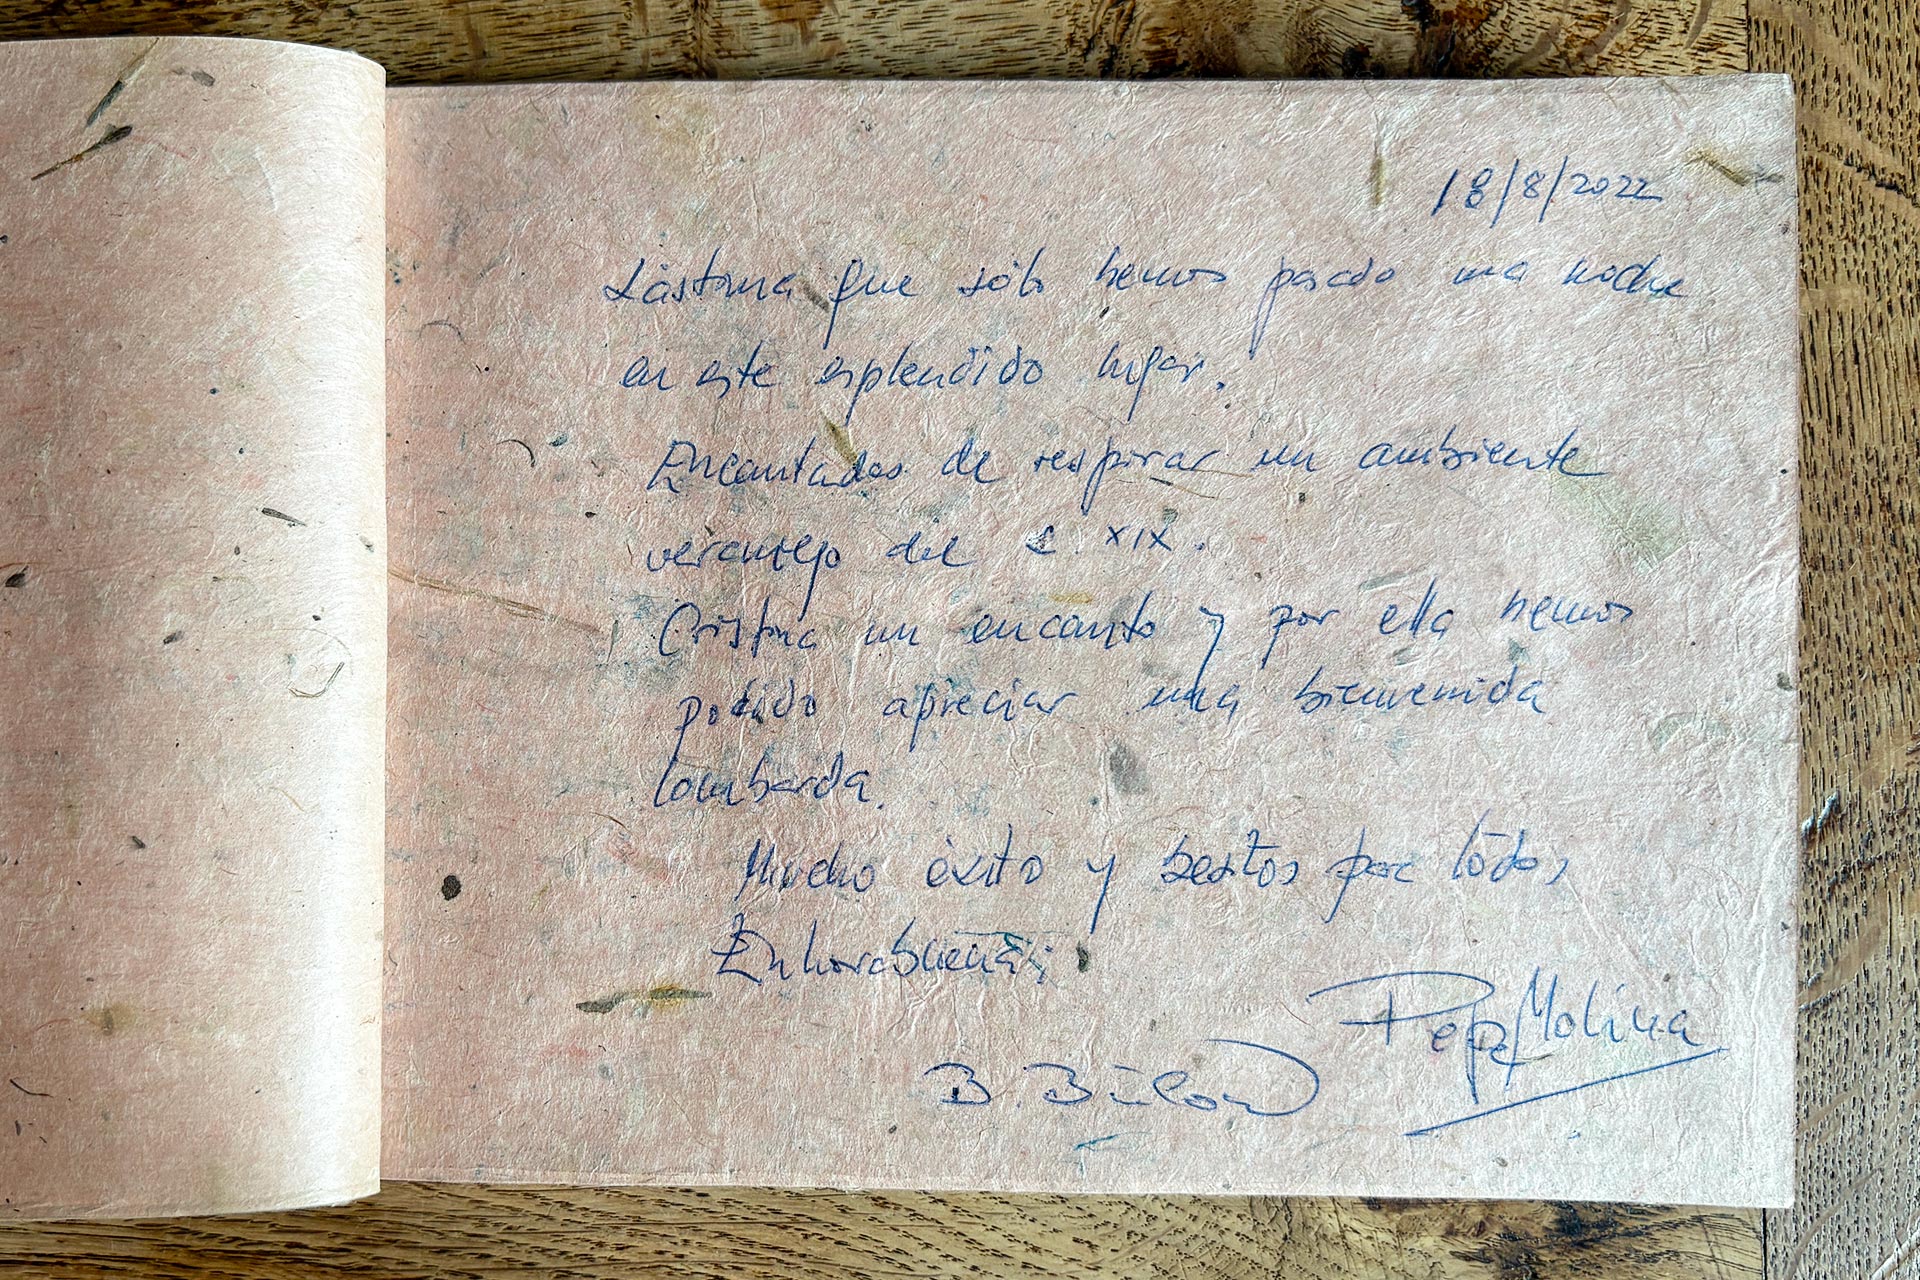 18/8/2022
Lástima que sólo hemos pasado una noche
en este esplendido lugar.
Encantados de respirar un ambiente
veraniego del s. XIX.
Cristina un encanto y por ella hemos
podido apreciar una bienvenida
lombarda.
Mucho éxito y besitos por todos
Enhorabuena
Pepe Molina
B. Bülow